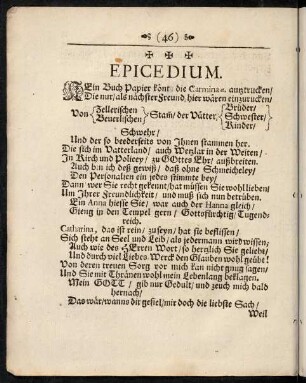 (46)
EPICEDIUM.
Ein Buch Papier könt die Carmina außtrucken/
Die nur/ als nächster Freund/ hier wären einzurucken/
Von Zellerischen Stam̃/ der Vätter/ Brüder/
Beuerlischen Schwester/
Kinder/
Schwehr/
Und der so beederseits von Ihnen stammen her.
Die sich im Vatterland/ auch Wetzlar in der Weiten/
In Kirch und Policey/ zu GOttes Ehr/ außbreiten.
Auch bin ich deß gewiß/ daß ohne Schmeicheley/
Den Personalien ein jedes stimmte bey/
Dann wer Sie recht gekennt/ hat müssen Sie wohl lieben/
Um Ihrer Freundlichkeit/ und muß sich nun betrüben.
Ein Anna hiesse Sie/ war auch der Hanna gleich/
Gieng in den Tempel gern/ Gottsfürchtig/ Tugend-
reich.
Catharina, das ist rein/ zu seyn/ hat sie beflissen/
Sich steht an Seel und Leib/ als jedermann wird wissen/
Auch wie des HErren Wort/ so hertzlich Sie geliebt/
Und durch viel Liebes-Werck den Glauben wohl geübt!
Von deren treuen Sorg vor mich kan nicht gnug sagen/
Und Sie mit Thränen wohl mein Lebenlang beklagen.
Mein GOTT/ gib nur Gedult/ und zeuch mich bald
hernach/
Das wär/ wanns dir gefiel/ mir doch die liebste Sach/
Weil